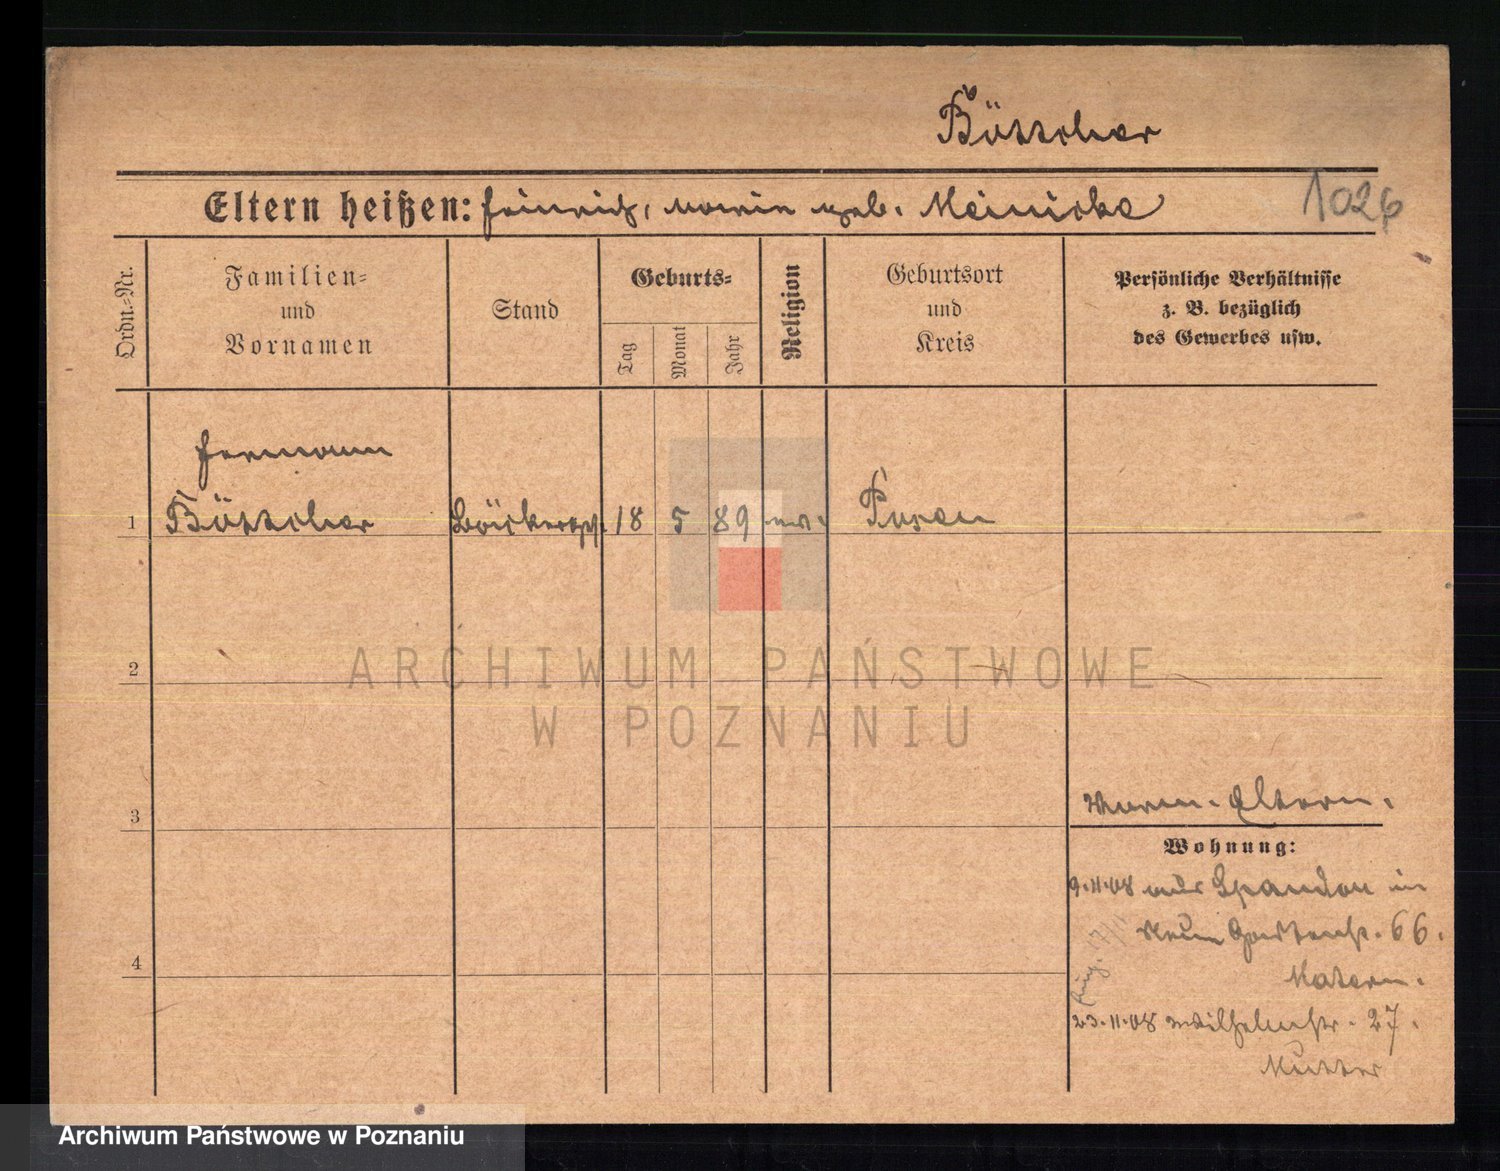 Böttcher
Eltern heißen: Heinrich, Marie geb. Meinicke
1026
Ordn.-Nr.
Familien-
und
Vornamen
Stand
Geburts-
Tag
Monat
Jahr
Religion
Geburtsort
und
Kreis
Persönliche Verhältnisse
z. B. bezüglich
des Gewerbes usw.
Hermann
1 Böttcher 18 5 89 ev. Posen
2
3
4
Eltern.
Wohnung:
9.11.08 aus Spandau in
66.
23.11.08 Wilhelmstr. 27.
Mutter
ARCHIWUM PAŃSTWOWE
W POZNANIU
Archiwum Państwowe w Poznaniu